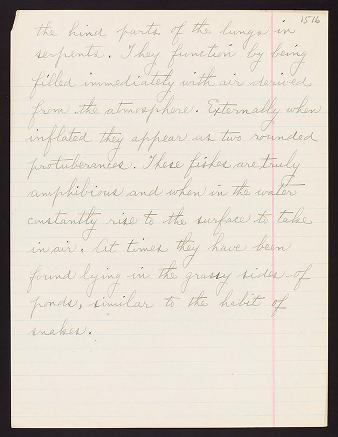 1516
the hind parts of the lungs in
serpents. They function by being
filled immediately with air derived
from the atmosphere. Externally when
inflated they appear as two rounded
protuberances. These fishes are truly
amphibious and when in the water
constantly rise to the surface to take
in air. At times they have been
found lying in the grassy sides of
ponds, similar to the habit of
snakes.